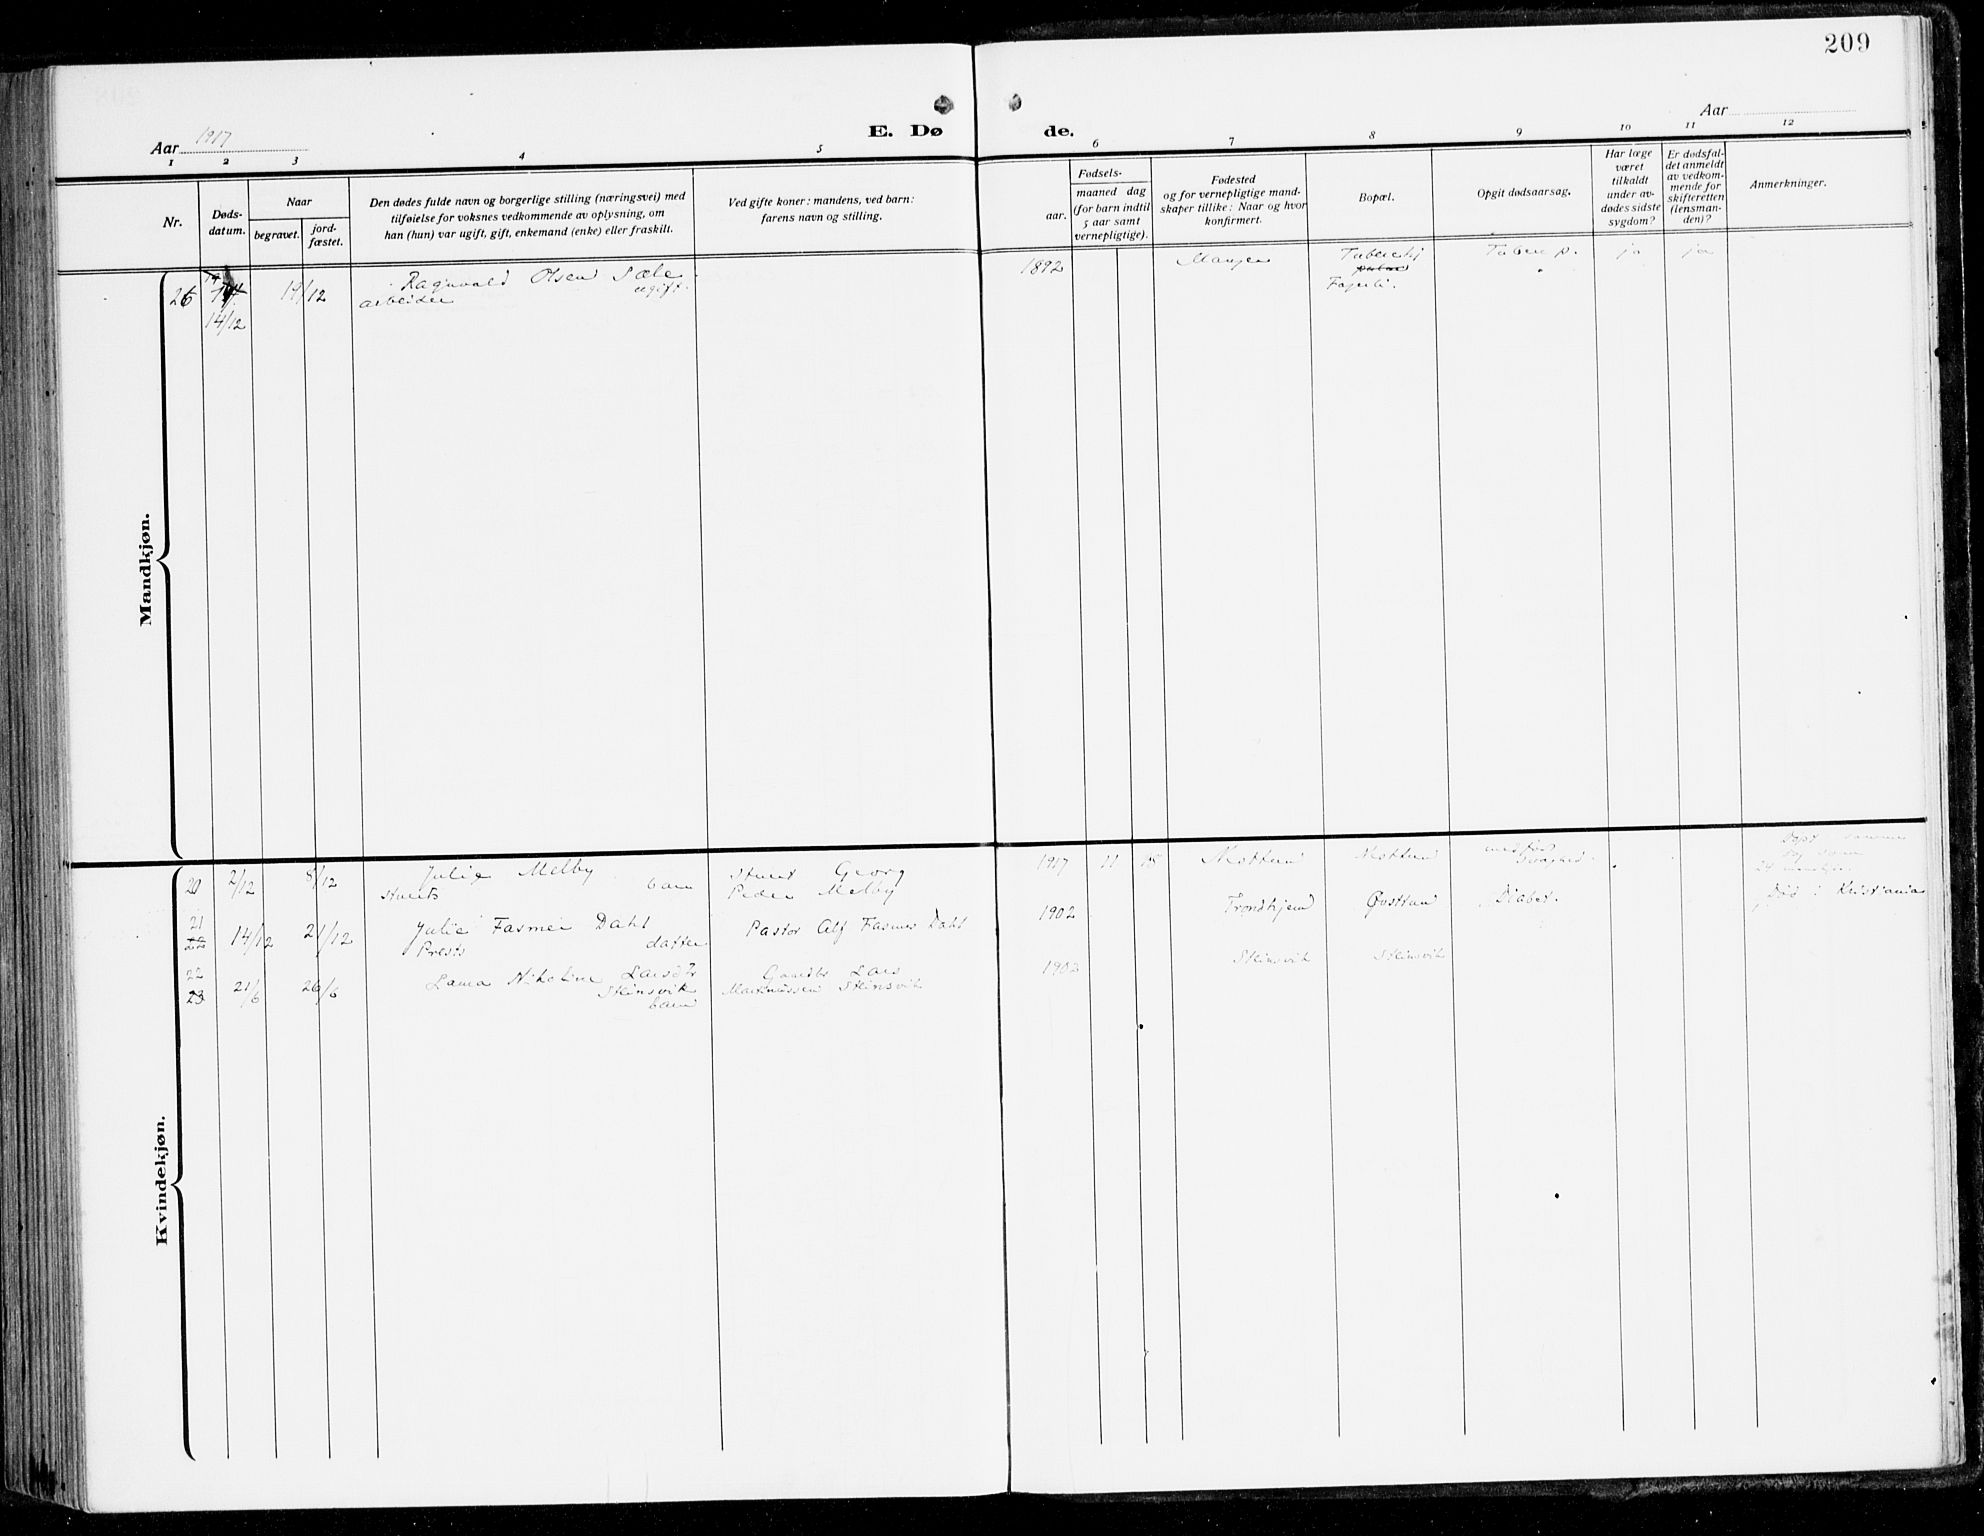 209
Aar 1917
E. Døde.
Aar
1 2 3 4 5 6 7 8 9 10 11 12
Nr.
Døds-
datum.
Naar
begravet.
jord-
fæstet.
Den dødes fulde navn og borgerlige stilling (næringsvei) med
tilføielse for voksnes vedkommende av oplysning, om
han (hun) var ugift, gift, enkemand (enke) eller fraskilt.
Ved gifte koner: mandens, ved barn:
farens navn og stilling.
Fødsels-
aar.
maaned dag
(for barn indtil
5 aar samt
vernepligtige).
Fødested
og for vernepligtige mand-
skaper tillike: Naar og hvor
konfirmert.
Bopæl.
Opgit dødsaarsag.
Har læge
været
tilkaldt
under av-
dødes sidste
sygdom?
Er dødsfal-
det anmeldt
av vedkom-
mende for
skifteretten
(lensman-
den)?
Anmerkninger.
Mandkjøn.
26 14/12 19/12 Ragnvald Olsen Sæle 1892 Manger Tub. p. ja ja
arbeider ugift.
Kvindekjøn.
20 2/12 8/12 Julie Melby Georg 1917 11 15 Nesttun Nesttun
barn Peder Melby
21 14/12 21/12 Julie Fasmer Dahl Pastor Alf Fasmer Dahl 1902 Trondhjem Øvsttun Diabet. Død i Kristiania
22 Prests datter
22 21/6 26/6 Laura Nikoline Larsdtr Gaardbr Lars 1902 Skinsvik Skinsvik
23 Skinsvik Martinussen Skinsvik
barn